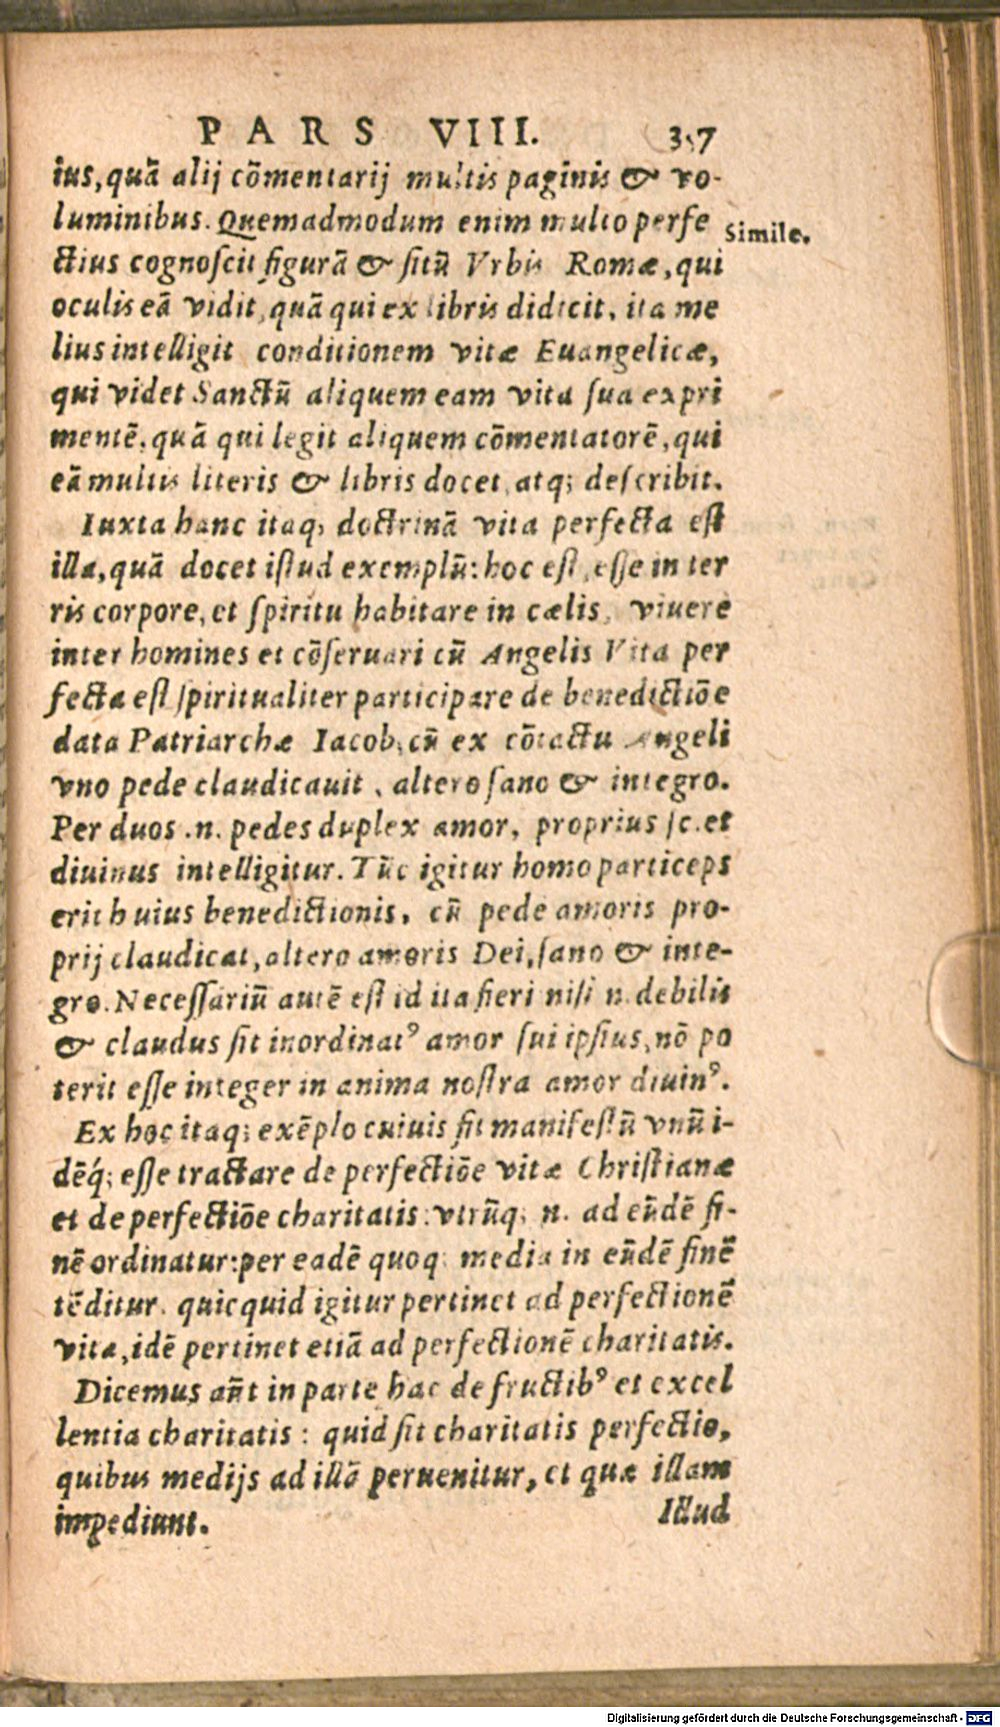 PARS VIII. 3·7
ius, quā alij cōmentarij multis paginis & vo-
luminibus. Quemadmodum enim multo perfe
Simile.
ctius cognoscit figurā & sitū Vrbis Romæ, qui
oculis eā vidit, quā qui ex libris didicit, ita me
lius intelligit conditionem vitæ Euangelicæ,
qui videt Sanctū aliquem eam vita sua expri
mentē, quā qui legit aliquem cōmentatorē, qui
eā multis literis & libris docet, atq; describit.
Iuxta hanc itaq; doctrinā vita perfecta est
illa, quā docet istud exemplū: hoc est, esse in ter
ris corpore, et spiritu habitare in cælis, viuere
inter homines et cōseruari cū Angelis Vita per
fecta est spiritualiter participare de benedictiōe
data Patriarchæ Iacob, cū ex cōtactu Angeli
vno pede claudicauit, altero sano & integro.
Per duos .n. pedes duplex amor, proprius sc. et
diuinus intelligitur. Tūc igitur homo particeps
erit huius benedictionis, cū pede amoris pro-
prij claudicat, altero amoris Dei, sano & inte-
gro. Necessariū autē est id ita fieri nisi n. debilis
& claudus sit inordinatꝰ amor sui ipsius, nō po
terit esse integer in anima nostra amor diuinꝰ.
Ex hoc itaq; exēplo cuiuis fit manifestū vnū i-
dēq́; esse tractare de perfectiōe vitæ Christianæ
et de perfectiōe charitatis: vtrūq; n. ad eūdē fi-
nē ordinatur: per eadē quoq; media in eūdē finē
tēditur. quicquid igitur pertinet ad perfectionē
vitæ, idē pertinet etiā ad perfectionē charitatis.
Dicemus aūt in parte hac de fructibꝰ et excel
lentia charitatis: quid sit charitatis perfectio,
quibus medijs ad illā peruenitur, et quæ illam
impediunt.
Illud
Digitalisierung gefördert durch die Deutsche Forschungsgemeinschaft - DFG